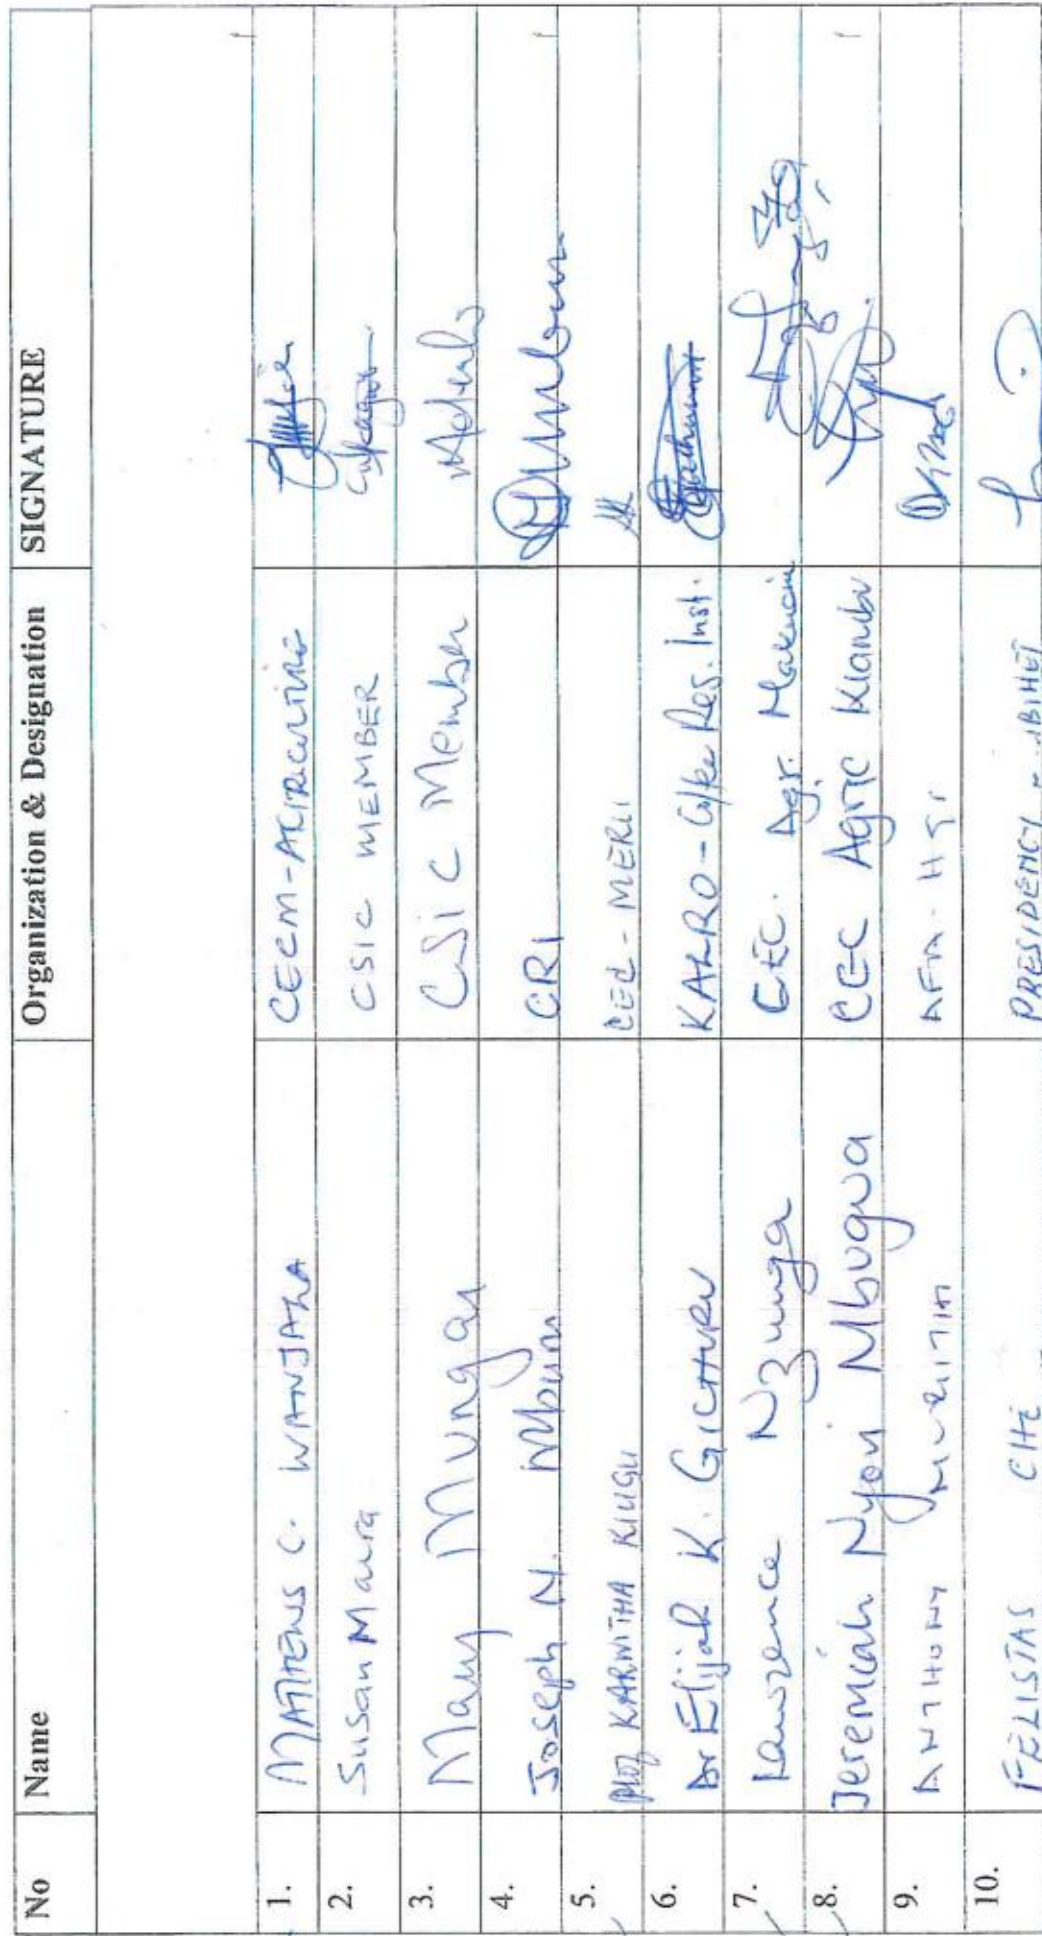 No Name Organization & Designation SIGNATURE
1. MATHEWS C. WANJALA CECM-AGRICULTURE
2. Susan Maura CSIC MEMBER
3. Mary Mungai CSIC Member
4. Joseph N. Mburu CRI
5. Prof KARWITHA KIUGU CEC - MERU
6. Dr Elijah K. GICHURU KALRO - Coffee Res. Inst.
7. Lawrence Nzunga CEC. Agr. Makueni
8. Jeremiah Nyori Mbugwa CEC Agric Kiambu
9. ANTHONY MURIITHI AFA-
10. FELISTAS CHE PRESIDENCY